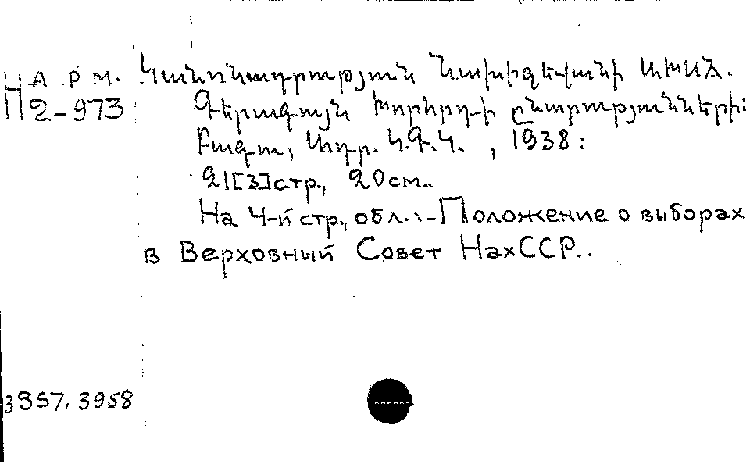 На арм. Կանոնադրության Նախիջևանի ԱԽՍՀ.
П2-973 Գերագույն Խորհրդ-ի ընտրությունների:
Բագու, Ադր. Կ.Գ.Կ., 1938:
21[3]стр., 20см..
На 4-й стр., обл.:-Положение о выборах
в Верховный Совет НахССР..
3957, 3958